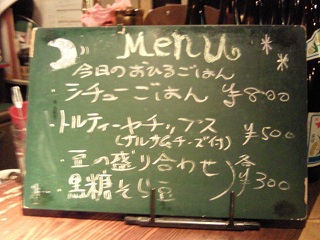 Menu
今日のおひるごはん
・シチューごはん ¥800
・トルティーヤチップス
(サルサ&チーズ付) ¥500
・豆の盛り合わせ 各
・黒糖そら豆 ¥300